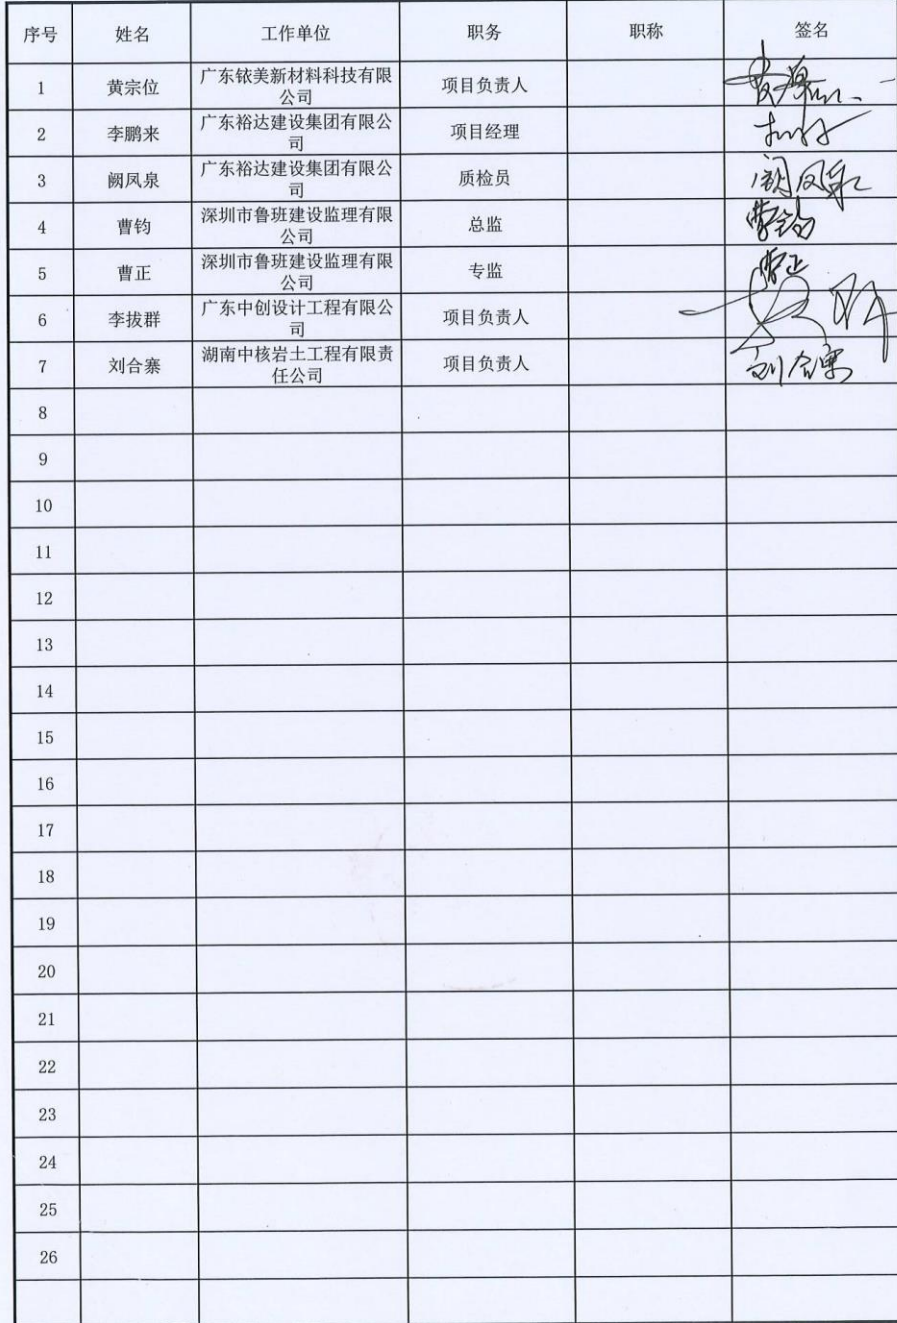 序号 姓名 工作单位 职务 职称 签名
1 黄宗位 广东铱美新材料科技有限公司 项目负责人
2 李鹏来 广东裕达建设集团有限公司 项目经理
3 阙凤泉 广东裕达建设集团有限公司 质检员 阙凤泉
4 曹钧 深圳市鲁班建设监理有限公司 总监 曹钧
5 曹正 深圳市鲁班建设监理有限公司 专监 曹正
6 李拔群 广东中创设计工程有限公司 项目负责人
7 刘合寨 湖南中核岩土工程有限责任公司 项目负责人 刘合寨
8
9
10
11
12
13
14
15
16
17
18
19
20
21
22
23
24
25
26